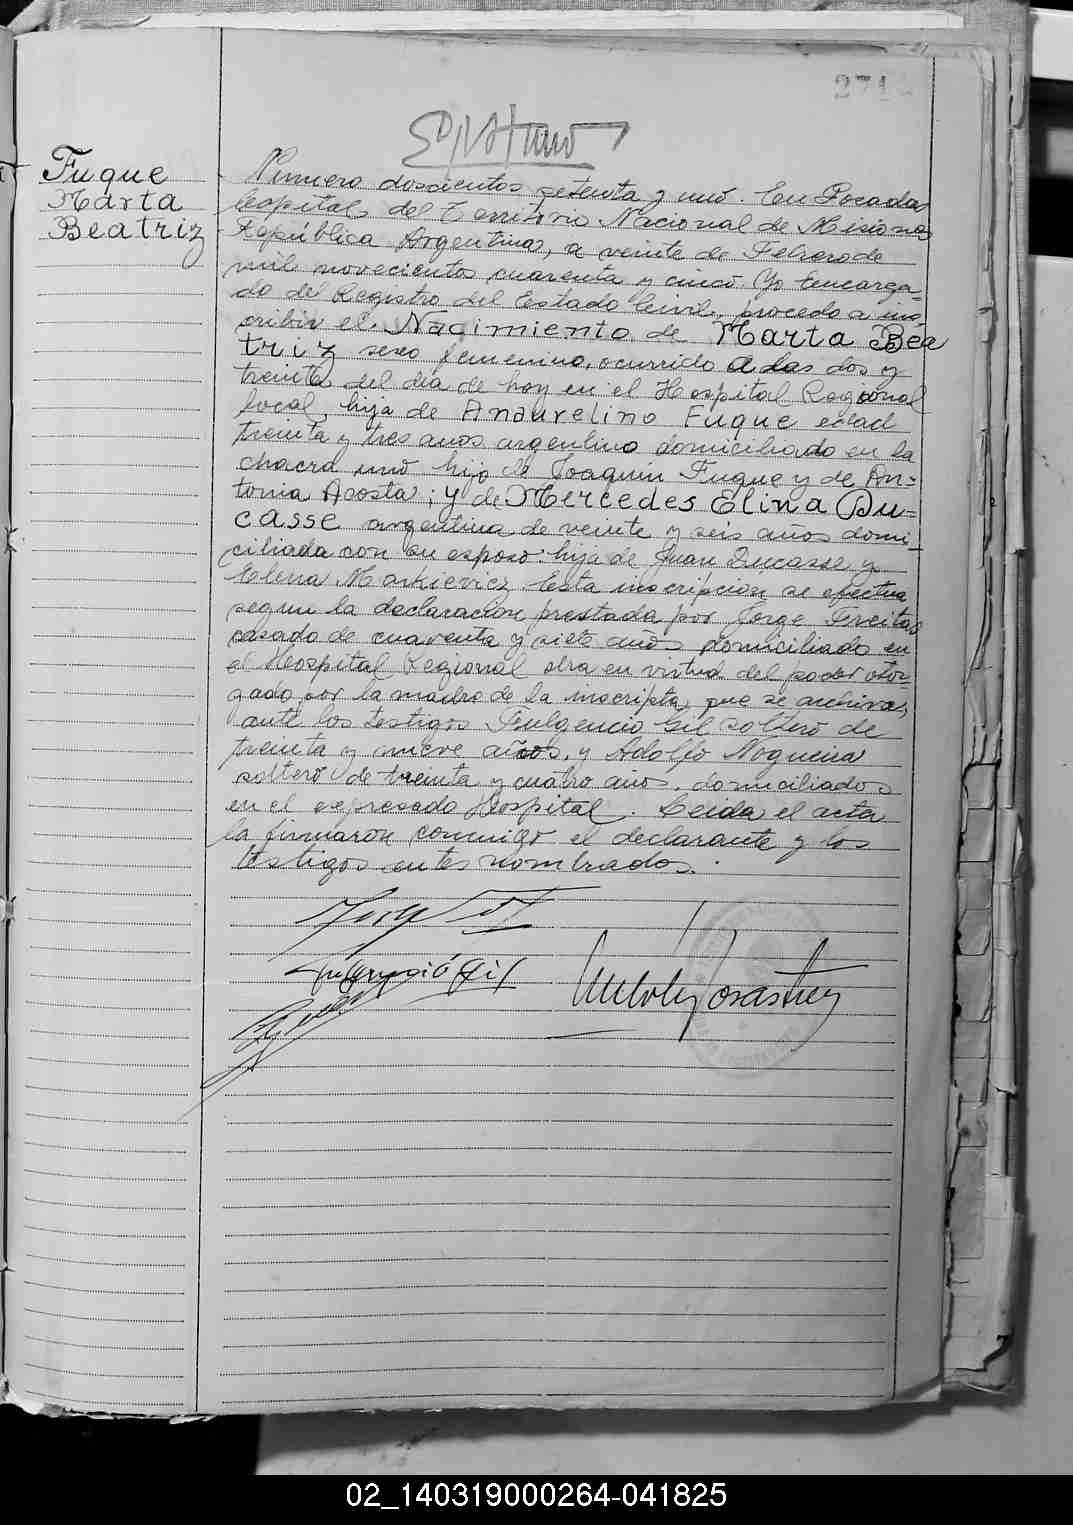 271
Fuque
Marta
Beatriz
Número doscientos setenta y uno. En Posadas
Capital del Territorio Nacional de Misiones
República Argentina, a veinte de Febrero de
mil novecientos cuarenta y cinco. Yo Encarga-
do del Registro del Estado Civil, procedo a ins-
cribir el Nacimiento de Marta Bea
triz sexo femenino, ocurrido a las dos y
treinta del día de hoy en el Hospital Regional
local, hija de Anaurelino Fuque edad
treinta y tres anos argentino domiciliado en la
chacra uno hijo de Joaquin Fuque y de An-
tonia Acosta; y de Mercedes Elina Du-
casse argentina de veinte y seis años domi-
ciliada con su esposo: hija de Juan Ducasse y
Elena Markievicz. Esta inscripción se efectua
segun la declaracion prestada por Jorge Freitas
casado de cuarenta y siete anos domiciliado en
el Hospital Regional obra en virtud del poder otor-
gado por la madre de la inscripta, que se archiva,
ante los testigos Fulgencio Gil soltero de
treinta y nueve años, y Adolfo Nogueira
soltero de treinta y cuatro anos, domiciliados
en el expresado Hospital. Leida el acta
la firmaron conmigo el declarante y los
testigos antes nombrados.
Fulgencio Gil
02_140319000264-041825